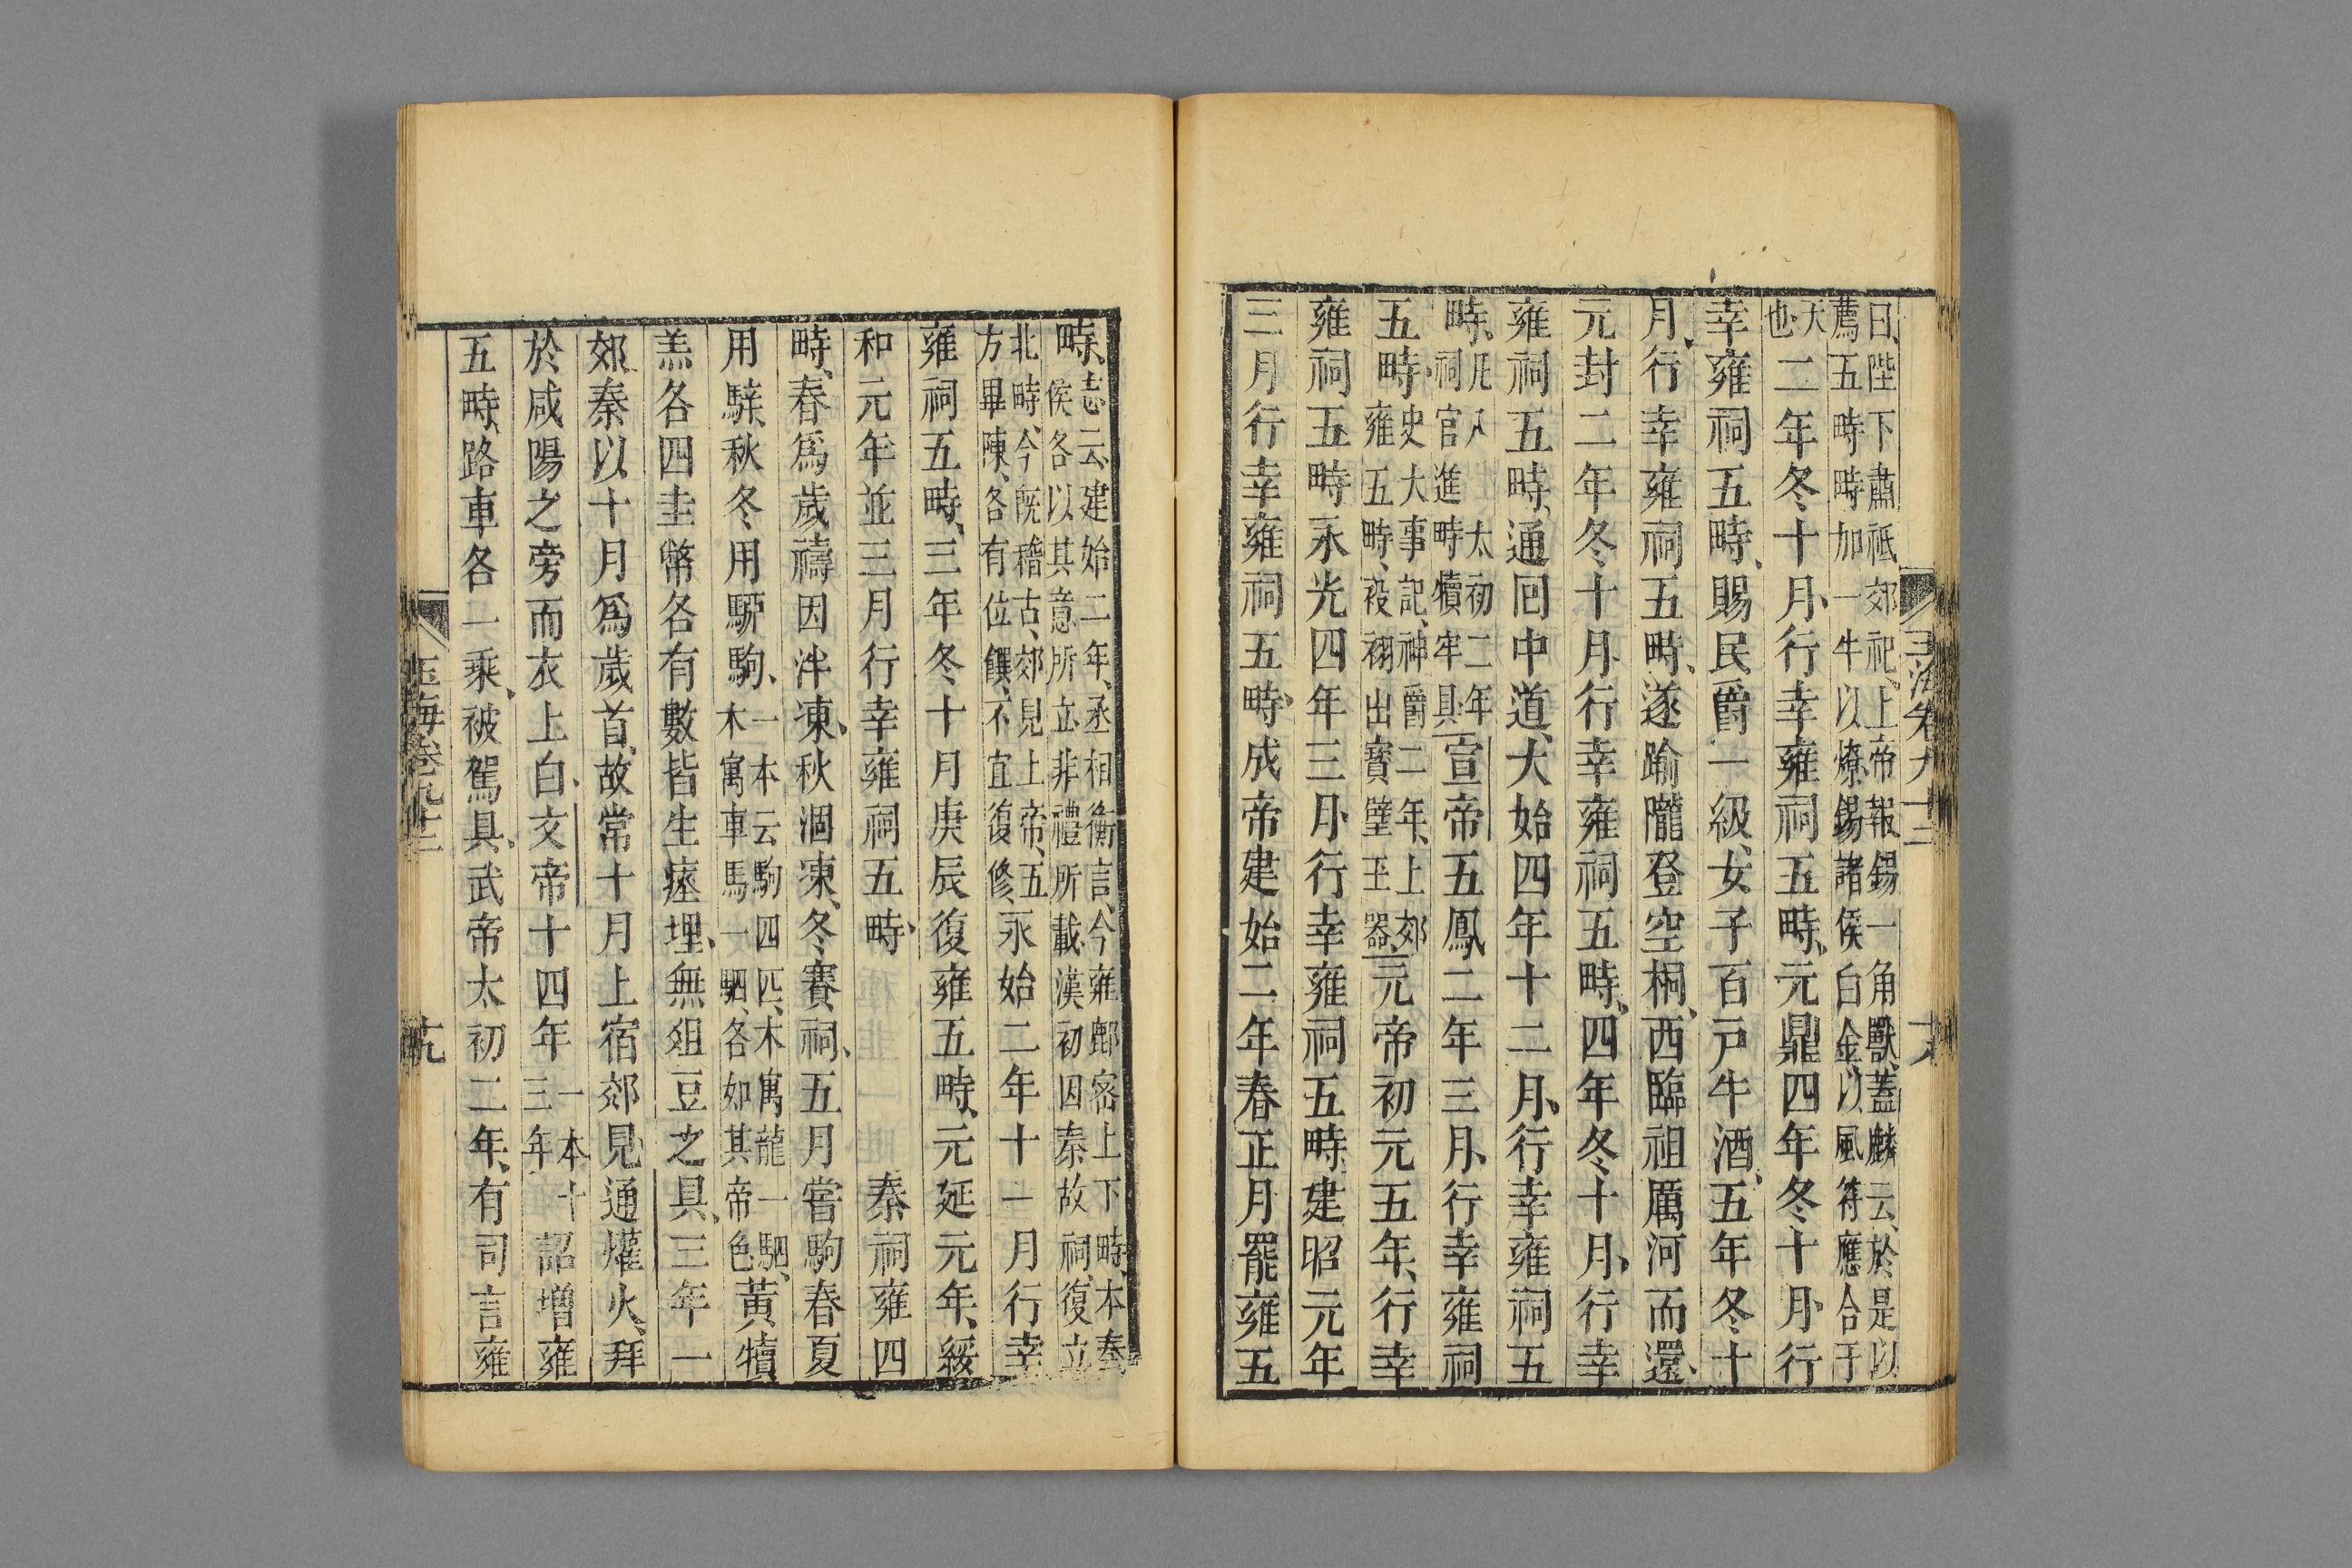 曰、陛下肅祗郊祀、上帝報錫一角獸、蓋麟云、於是以
薦五畤畤加一牛以燎、錫諸侯白金、以風符應合于
天
也、二年冬十月、行幸雍祠五畤、元鼎四年冬十月、行
幸雍祠五畤、賜民爵一級、女子百戸牛酒、五年冬十
月、行幸雍祠五畤、遂踰隴登空桐、西臨祖厲河而還、
元封二年冬十月、行幸雍祠五畤、四年冬十月、行幸
雍祠五畤、通回中道、大始四年十二月、行幸雍祠五
畤、
太初二年
祠官進畤犢牢具
宣帝五鳳二年三月、行幸雍祠
五畤、
史大事記、神爵二年、上郊
雍五畤、祋祤出寶璧玉器
元帝初元五年、行幸
雍祠五畤永光四年三月、行幸雍祠五畤建昭元年
三月行幸雍祠五畤、成帝建始二年春正月罷雍五
玉海卷九十三
畤、
志云、建始二年、丞相衡言、今雍鄜密上下畤、本秦
侯各以其意所立、非禮所載、漢初因秦故祠、復立
北畤、今旣稽古、郊見上帝、五
方畢陳、各有位饌、不宜復修、
永始二年十一月行幸
雍祠五畤、三年冬十月庚辰復雍五畤、元延元年、綏
和元年並三月行幸雍祠五畤、
秦祠雍四
畤、春爲歲禱因泮凍、秋涸凍、冬賽祠、五月嘗駒春夏
用騂、秋冬用駵駒、
一本云駒四匹、木寓龍一駟、
木寓車馬一駟、各如其帝色、
黃犢、
羔各四圭幣各有數皆生瘞埋、無俎豆之具、三年一
郊秦以十月爲歲首、故常十月上宿郊見通爟火、拜
於咸陽之旁而衣上白、文帝十四年
一本十
三年
詔增雍
五畤、路車各一乘、被駕具、武帝太初二年、有司言雍
玉海卷九十三